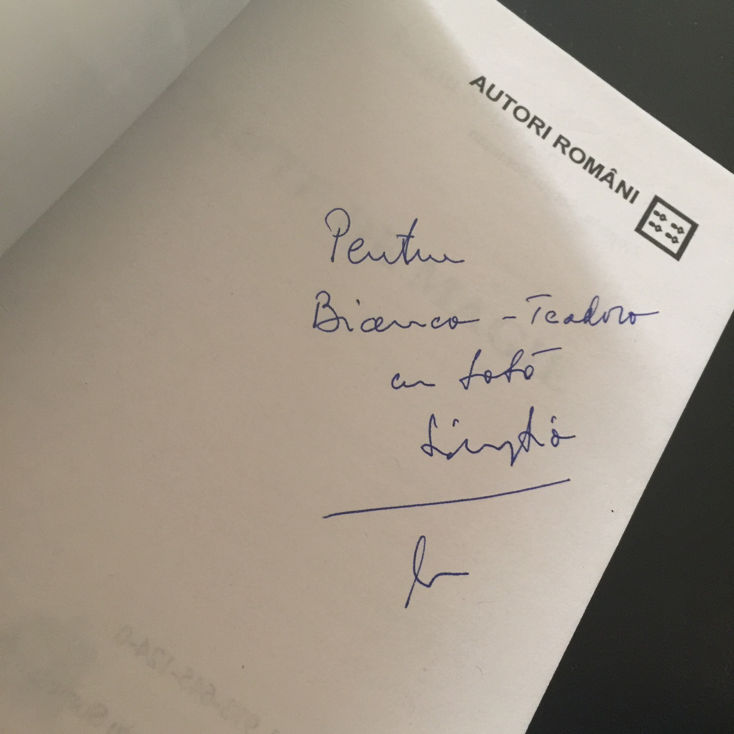 AUTORI ROMÂNI
Pentru
Bianca-Teodora
cu toată